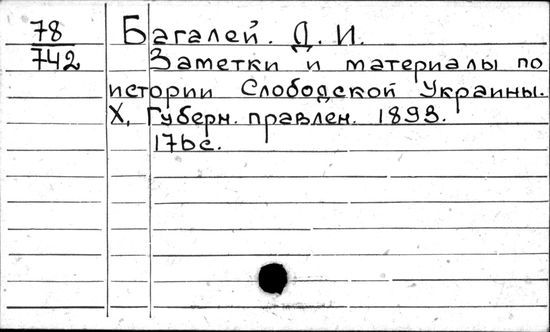 78 Багалей. Д. И.
742 Заметки и материалы по
истории Слободской Украины.
Х, Губерн. правлен. 1893.
176с.